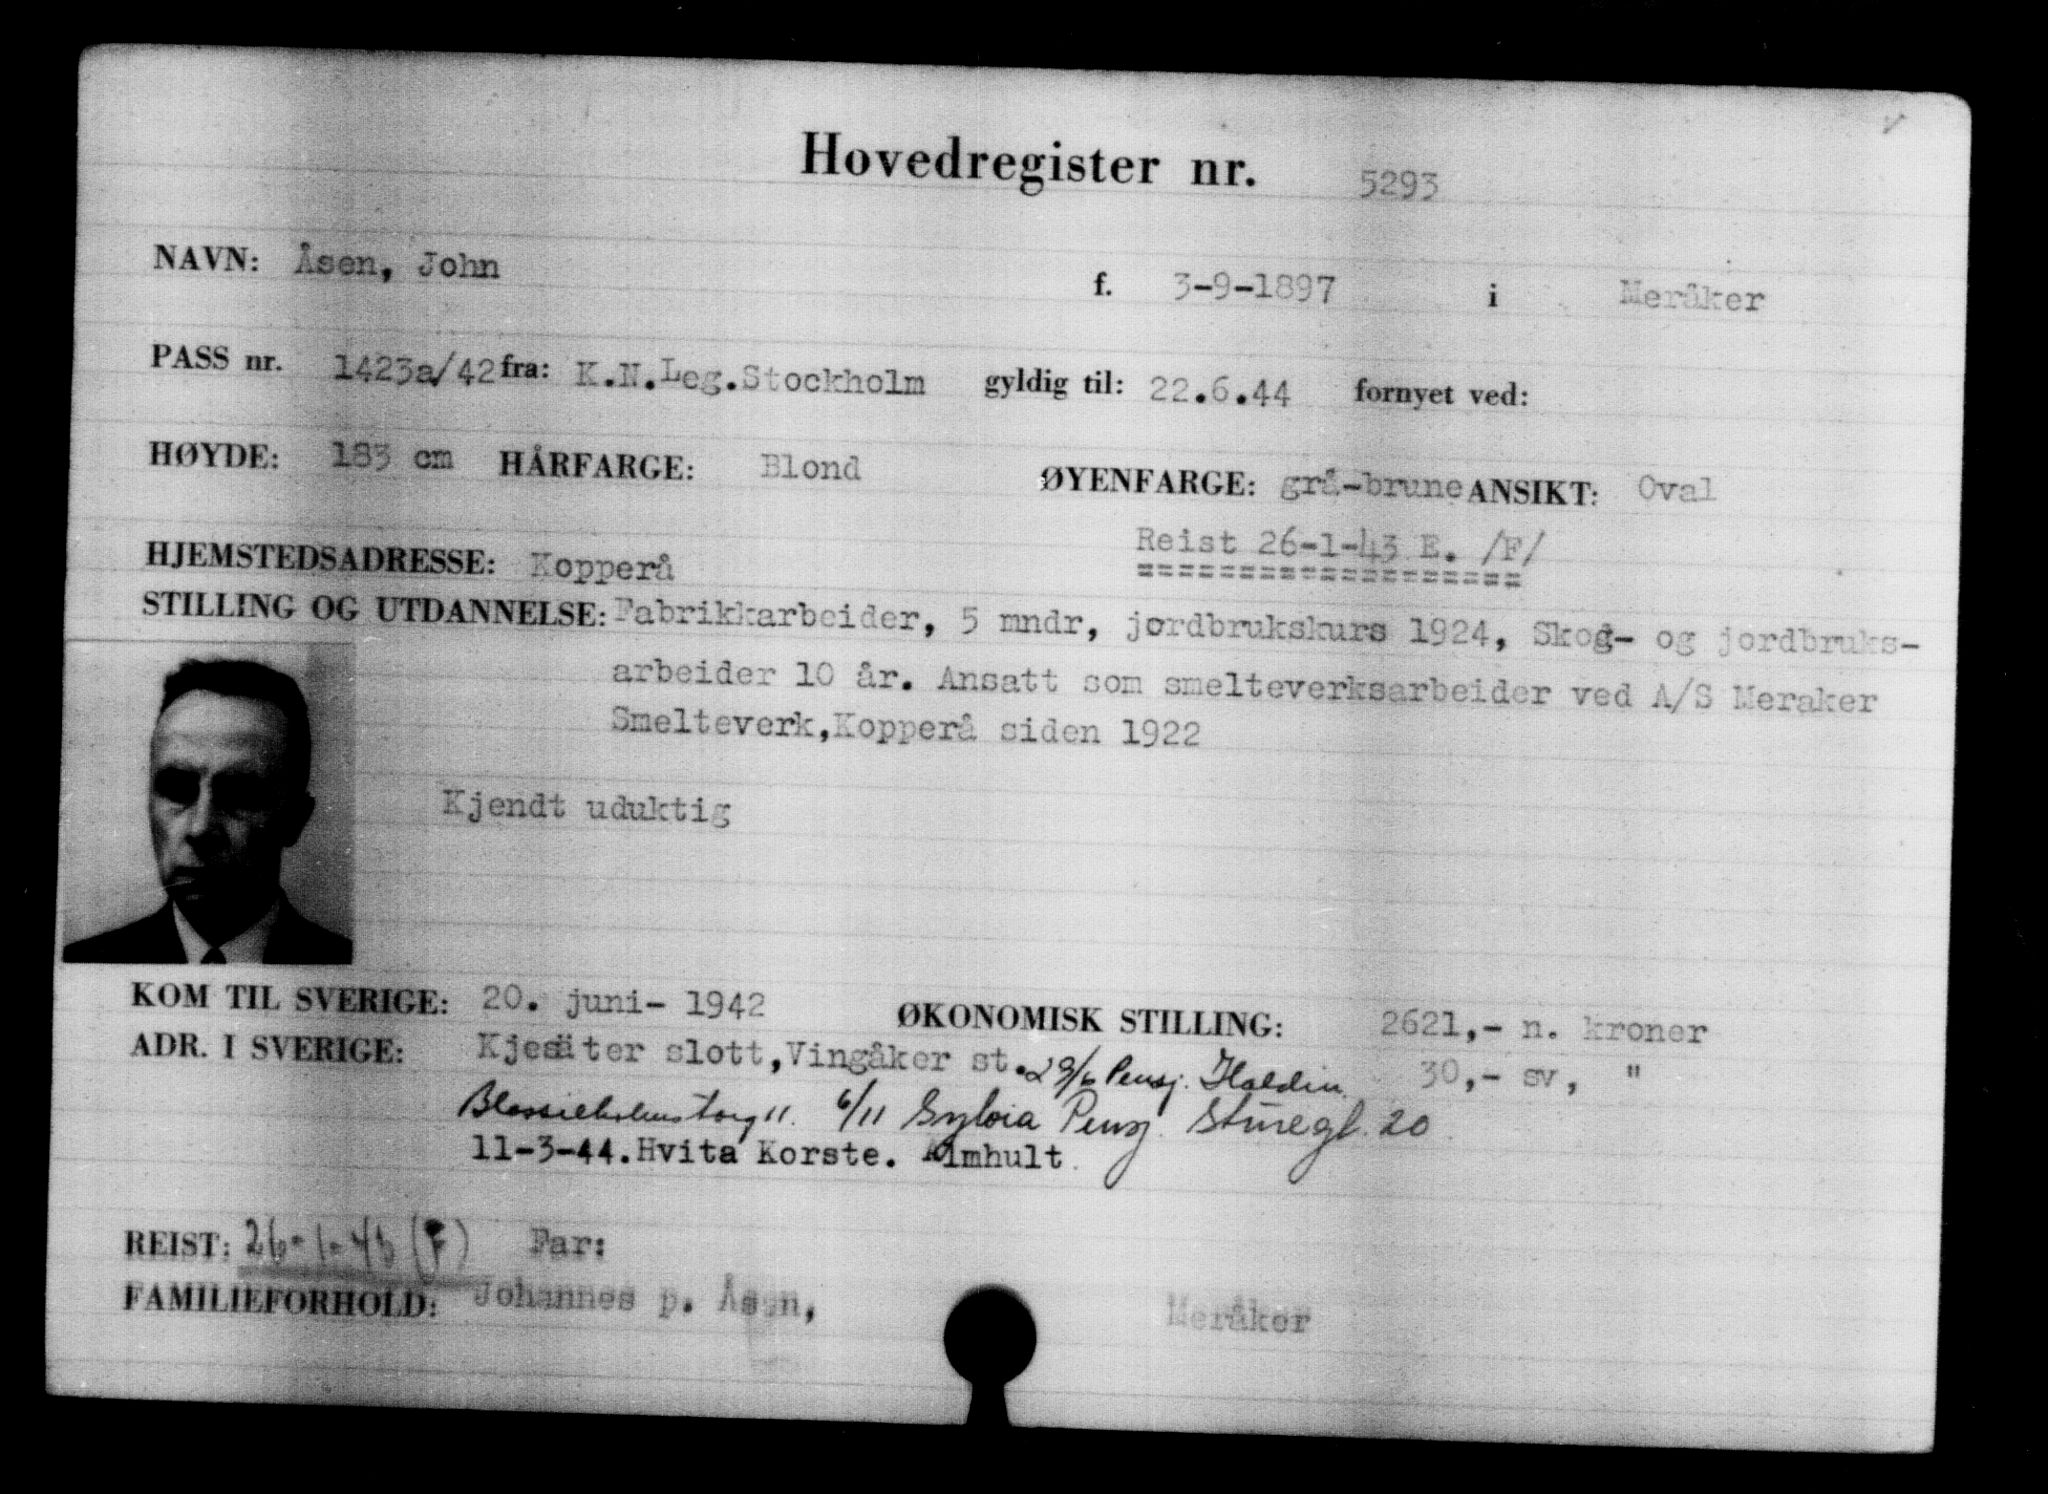 Hovedregister nr. 5293
NAVN: Åsen, John f. 3-9-1897 i Meråker
PASS nr. 1423a/42 fra: K.N.Leg.Stockholm gyldig til: 22.6.44 fornyet ved:
HØYDE: 183 cm HÅRFARGE: Blond ØYENFARGE: grå-brune ANSIKT: Oval
Reist 26-1-43 E. /F/
===================
HJEMSTEDSADRESSE: Kopperå
STILLING OG UTDANNELSE: Fabrikkarbeider, 5 mndr, jordbrukskurs 1924, Skog- og jordbruks-
arbeider 10 år. Ansatt som smelteverksarbeider ved A/S Meraker
Smelteverk,Kopperå siden 1922
Kjendt uduktig
KOM TIL SVERIGE: 20. juni- 1942 ØKONOMISK STILLING: 2621,- n. kroner
ADR. I SVERIGE: Kjesäter slott,Vingåker st. 29/6 Pensj. Haldin 30,- sv, "
Blasieholmstorg 11. 6/11 Sylvia Pensj. Sturegt. 20
11-3-44. Hvita Korste. Almhult.
REIST: 26-1-43 (F) Far:
FAMILIEFORHOLD: Johannes p. Åsen, Meråker